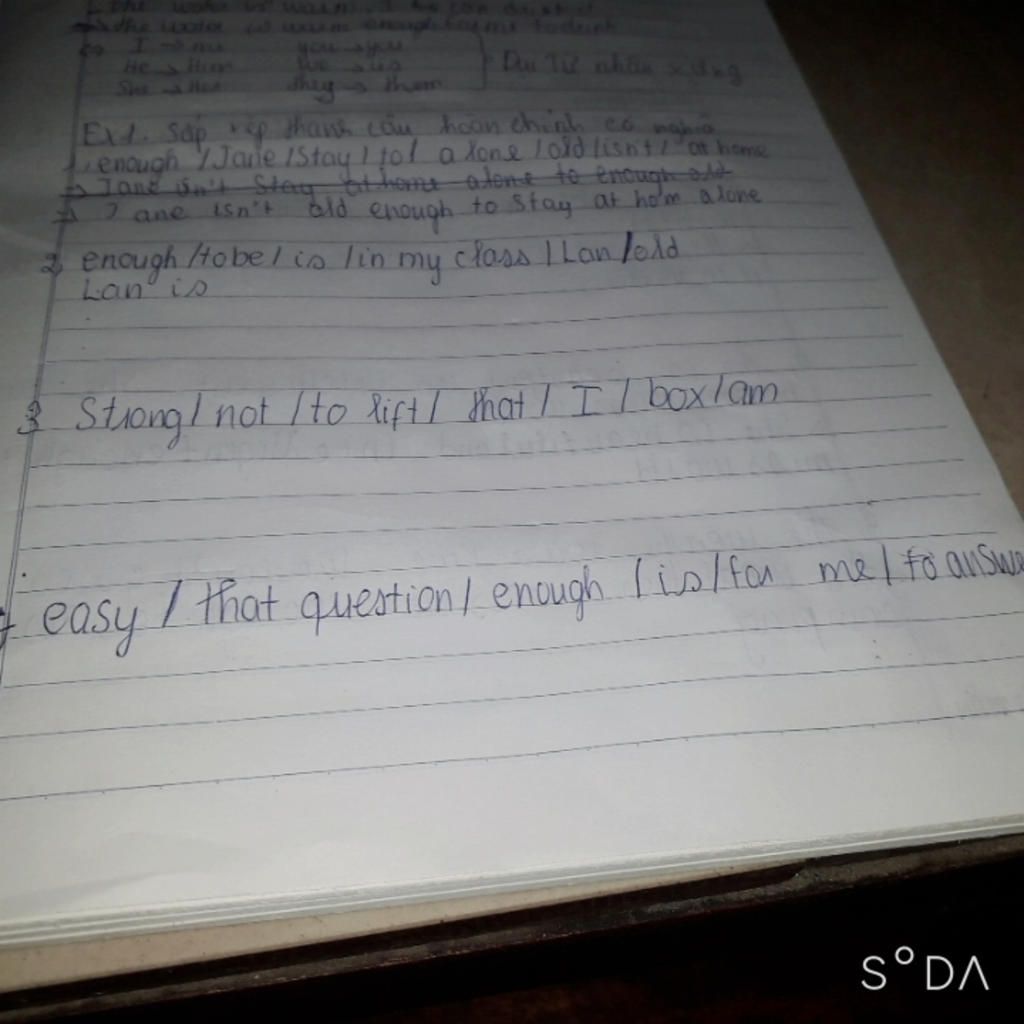 1. The water is warm. I can drink it
→ the water is warm enough for me to drink
I → me you → you
He → Him We → us Đại Từ nhân xưng
She → Her they → them
Ex1. Sắp xếp thành câu hoàn chỉnh có nghĩa
1, enough / Jane / Stay / to / alone / old / isn't / at home
→ Jane isn't Stay at home alone to enough old
→ Jane isn't old enough to stay at hom alone
2, enough / to be / is / in my class / Lan / old
Lan is
3 Strong / not / to lift / that / I / box / am
easy / that question / enough / is / for me / to answe
S°DA